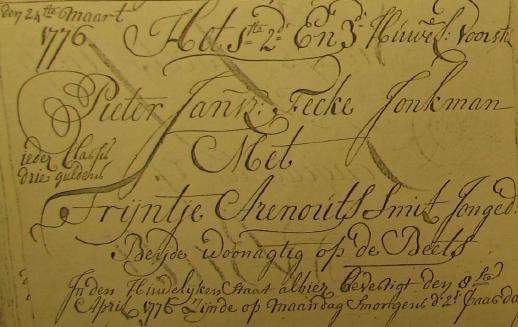 den 24ste Maart
1776
Het 1ste 2de En 3de Huwel: Voorst:
Pieter Jansz: Fecke Jonkman
ieder Classis
drie guldens
Met
Trijntje Arenouts Smit Jonged:
Beijde woonagtig op de Beets
In den Huwelijken Staat alhier bevestigt den 8ste
April 1776 Zijnde op Maandag Smorgens d' 2de Paasda